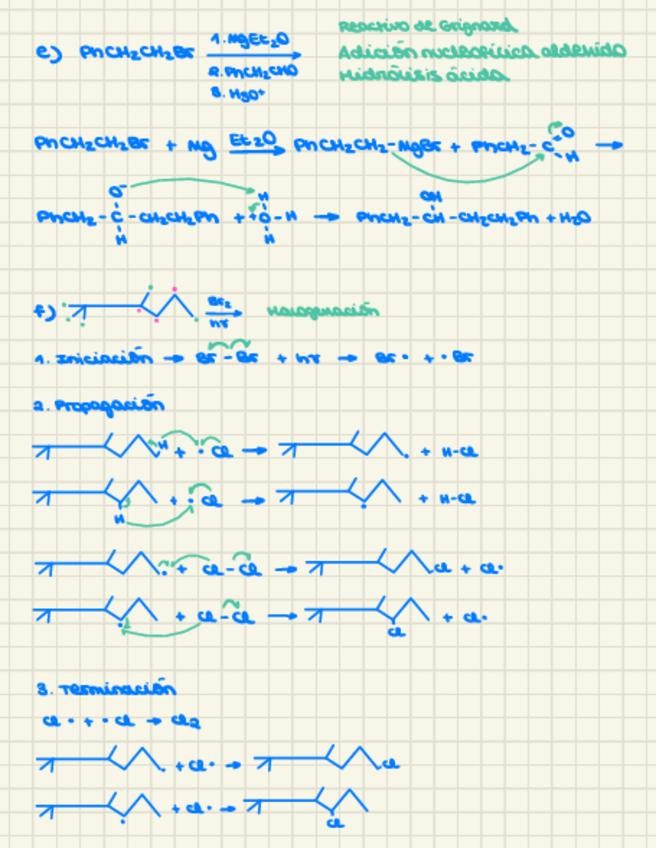 e) PhCH2CH2Br 1. MgEt2O 2. PhCH2CHO 3. H3O+
Reactivo de Grignard
Adición nucleofílica aldehído
Hidrólisis ácida
PhCH2CH2Br + Mg Et2O → PhCH2CH2-MgBr + PhCH2-C O H →
PhCH2-C-CH2CH2Ph + O-H → PhCH2-CH-CH2CH2Ph + H2O
O⁻ H H H OH
f) Br2 hν → Halogenación
1. Iniciación → Br-Br + hν → Br• + •Br
2. Propagación
H + •Cl → • + H-Cl
H + •Cl → • + H-Cl
• + Cl-Cl → Cl + Cl•
• + Cl-Cl → Cl + Cl•
3. Terminación
Cl• + •Cl → Cl2
• + Cl• → Cl
• + Cl• → Cl